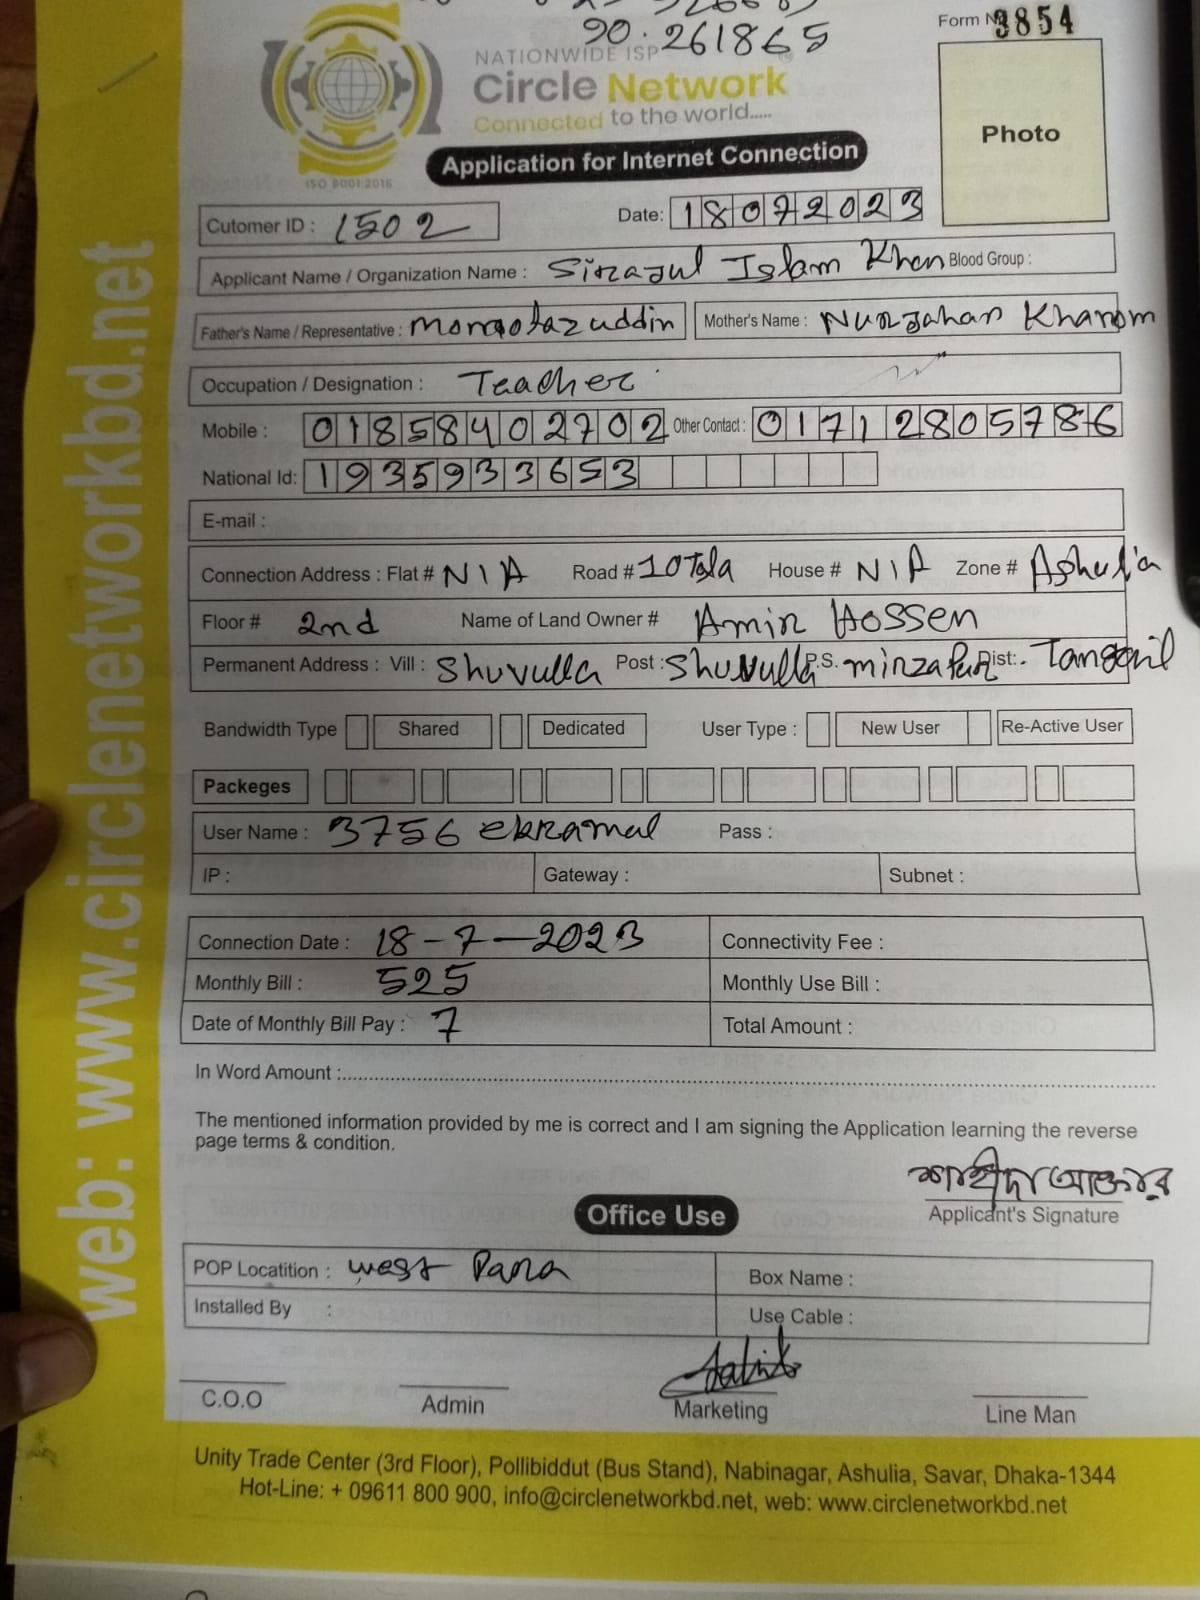 90.261865
Form No 3854
NATIONWIDE ISP
Circle Network
Connected to the world.....
ISO 9001:2015
Application for Internet Connection
Photo
Cutomer ID : 1502
Date: 18072023
Applicant Name / Organization Name : Sirazul Islam Khan Blood Group :
Father's Name / Representative : Momotazuddin Mother's Name : Nurjahan Khanom
Occupation / Designation : Teacher
Mobile : 01858402702 Other Contact : 01712805786
National Id: 1935933653
E-mail :
Connection Address : Flat # N/A Road # 10 Tala House # N/A Zone # Ashulia
Floor # 2nd Name of Land Owner # Amir Hossen
Permanent Address : Vill : Shuvulla Post : Shuvulla P.S. mirzapur Dist: Tangail
Bandwidth Type Shared Dedicated User Type : New User Re-Active User
Packeges
User Name : 3756 ekramul Pass :
IP : Gateway : Subnet :
Connection Date : 18-7-2023 Connectivity Fee :
Monthly Bill : 525 Monthly Use Bill :
Date of Monthly Bill Pay : 7 Total Amount :
In Word Amount :
The mentioned information provided by me is correct and I am signing the Application learning the reverse
page terms & condition.
শাহীদা আক্তার
Applicant's Signature
Office Use
POP Locatition : west Para Box Name :
Installed By : Use Cable :
C.O.O Admin Marketing Line Man
Unity Trade Center (3rd Floor), Pollibiddut (Bus Stand), Nabinagar, Ashulia, Savar, Dhaka-1344
Hot-Line: + 09611 800 900, info@circlenetworkbd.net, web: www.circlenetworkbd.net
web: www.circlenetworkbd.net